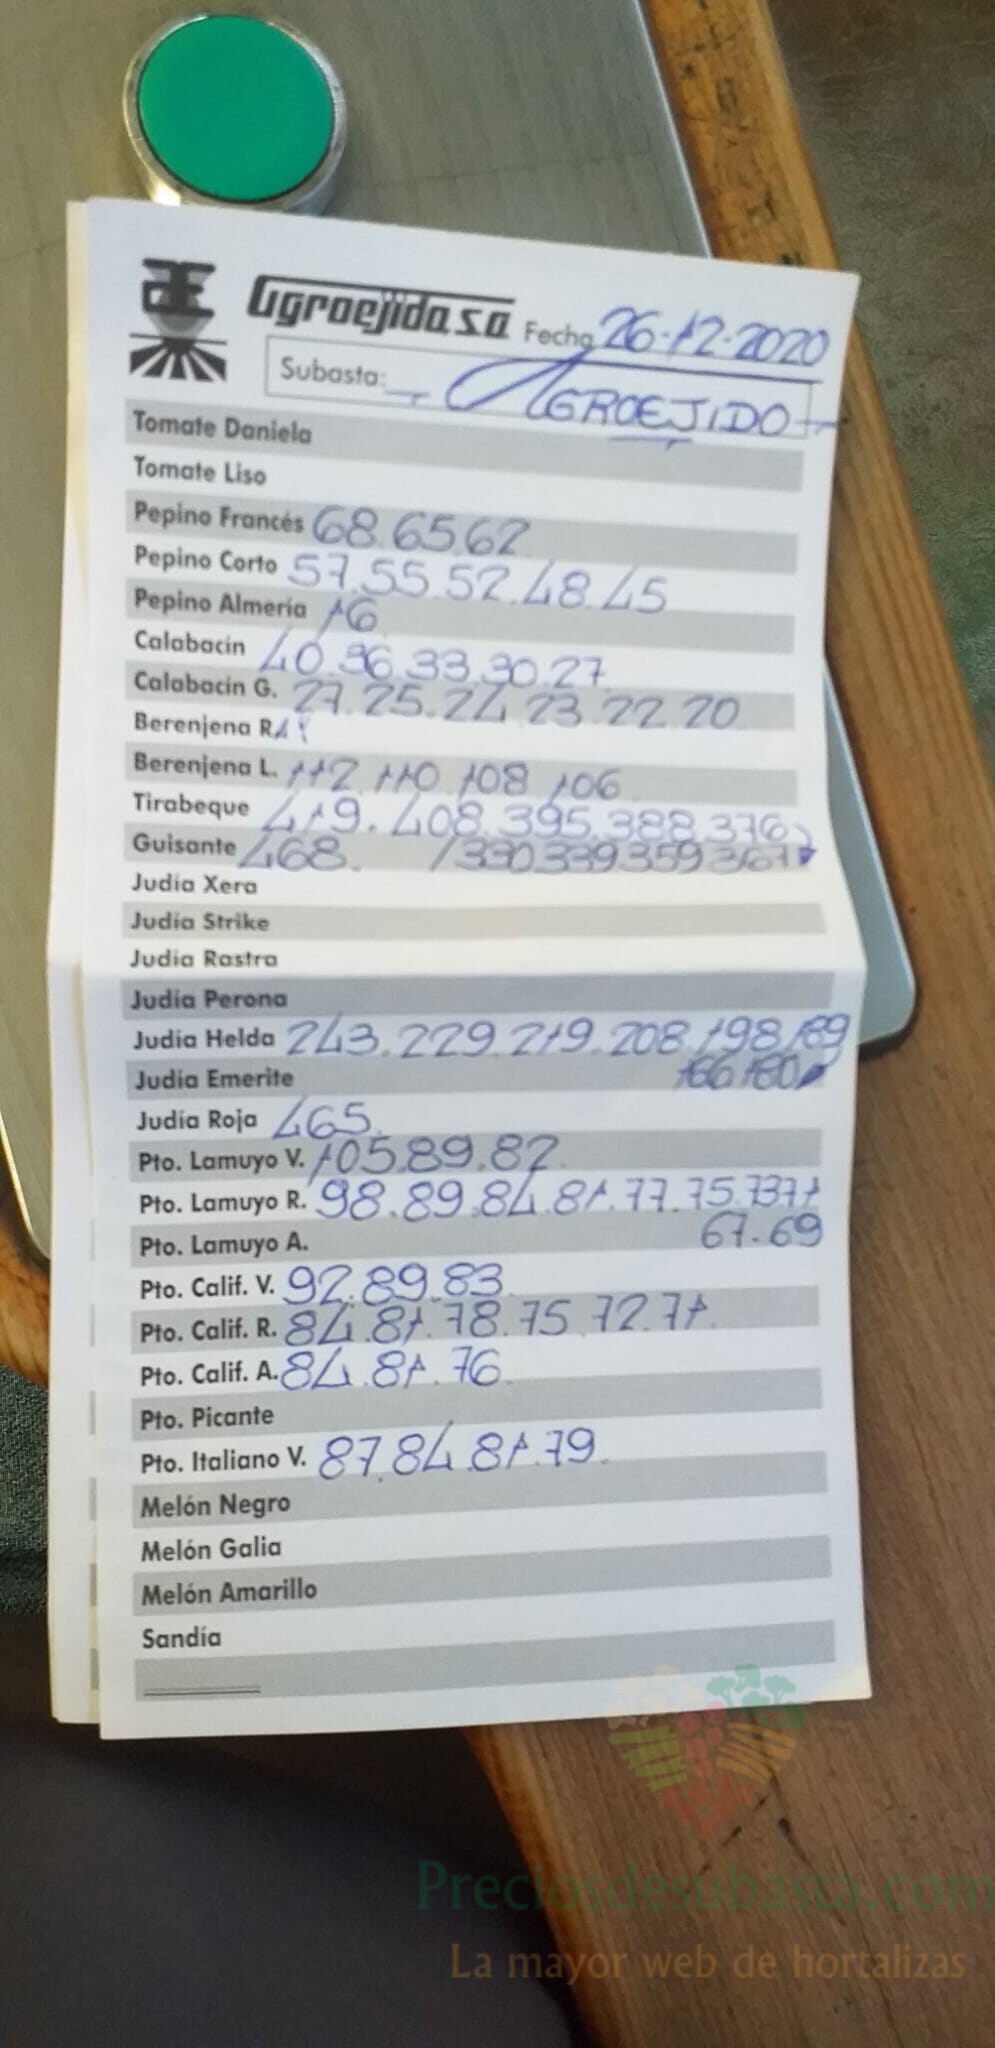 Agroejido s.a Fecha 26-12-2020
Subasta: AGROEJIDO
Tomate Daniela
Tomate Liso
Pepino Francés 68.65.62
Pepino Corto 57.55.52.48.45
Pepino Almería 16
Calabacín 40.36.33.30.27
Calabacín G. 27.25.24.23.22.20
Berenjena R.
Berenjena L. 112.110.108.106
Tirabeque 419.408.395.388.376
Guisante 468. /330.339.359.367
Judía Xera
Judía Strike
Judía Rastra
Judía Perona
Judía Helda 243.229.219.208.198.189
Judía Emerite 166.180
Judía Roja 465.
Pto. Lamuyo V. 105.89.82
Pto. Lamuyo R. 98.89.84.81.77.75.73.71
Pto. Lamuyo A. 67.69
Pto. Calif. V. 92.89.83
Pto. Calif. R. 84.81.78.75.72.71.
Pto. Calif. A. 84.81.76
Pto. Picante
Pto. Italiano V. 87.84.81.79.
Melón Negro
Melón Galia
Melón Amarillo
Sandía
Preciosdesubasta.com
La mayor web de hortalizas